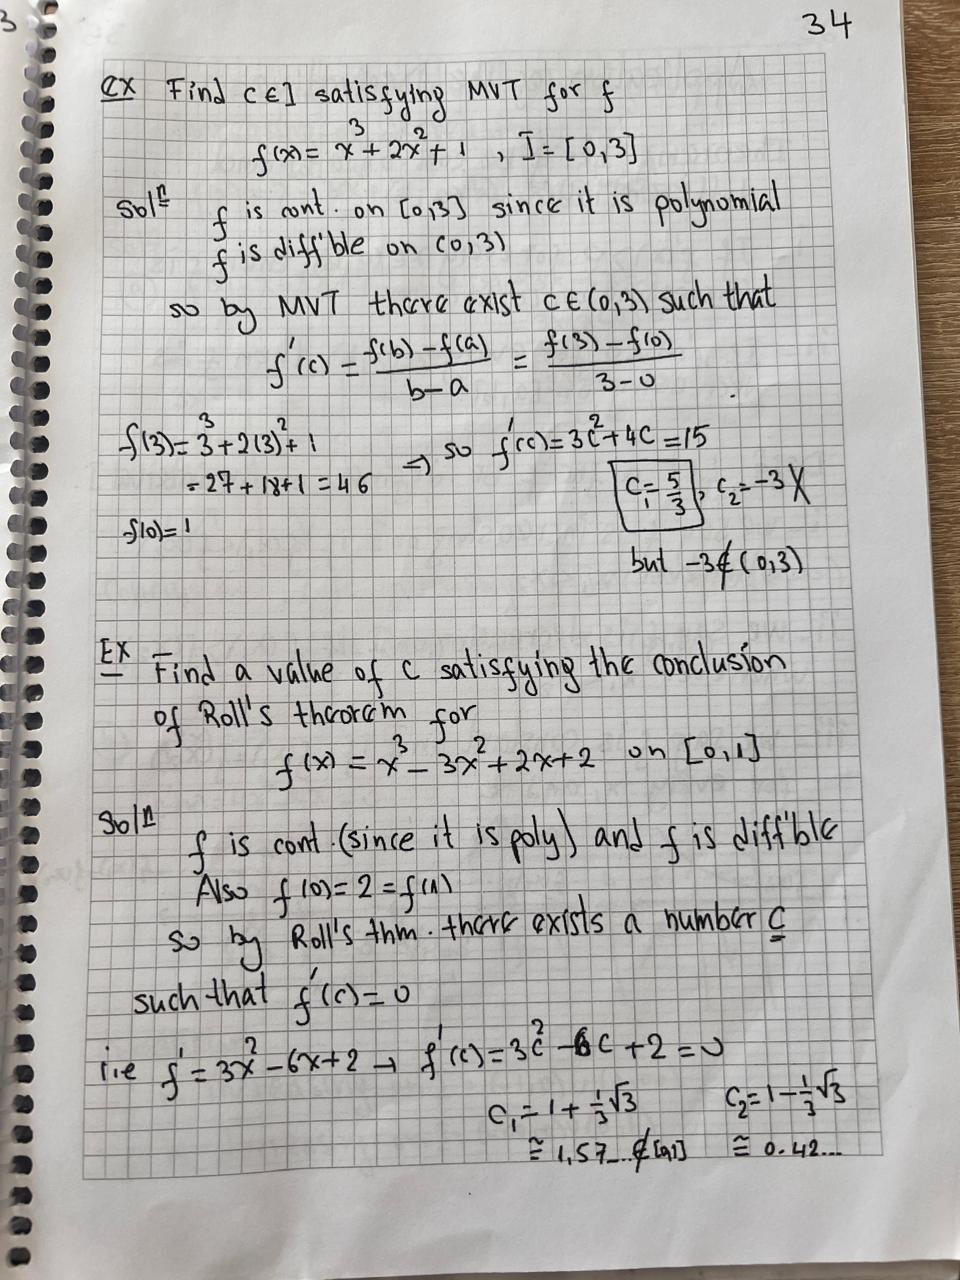 3
34
EX Find c ∈ I satisfying MVT for f
f(x) = x³ + 2x² + 1 , I = [0,3]
Solⁿ f is cont. on [0,3] since it is polynomial
f is diff'ble on (0,3)
so by MVT there exist c ∈ (0,3) such that
f'(c) = f(b) – f(a) / b – a = f(3) – f(0) / 3 – 0
f(3) = 3³ + 2(3)² + 1 ⇒ so f'(c) = 3c² + 4c = 15
= 27 + 18 + 1 = 46
c₁ = 5/3 , c₂ = -3 X
f(0) = 1
but -3 ∉ (0,3)
EX Find a value of c satisfying the conclusion
of Roll's theorem for
f(x) = x³ – 3x² + 2x + 2 on [0,1]
Solⁿ
f is cont. (since it is poly) and f is diff'ble
Also f(0) = 2 = f(1)
so by Roll's thm. there exists a number c
such that f'(c) = 0
i.e f' = 3x² – 6x + 2 → f'(c) = 3c² – 6c + 2 = 0
c₁ = 1 + 1/3 √3 c₂ = 1 – 1/3 √3
≅ 1,57... ∉ [0,1] ≅ 0.42...